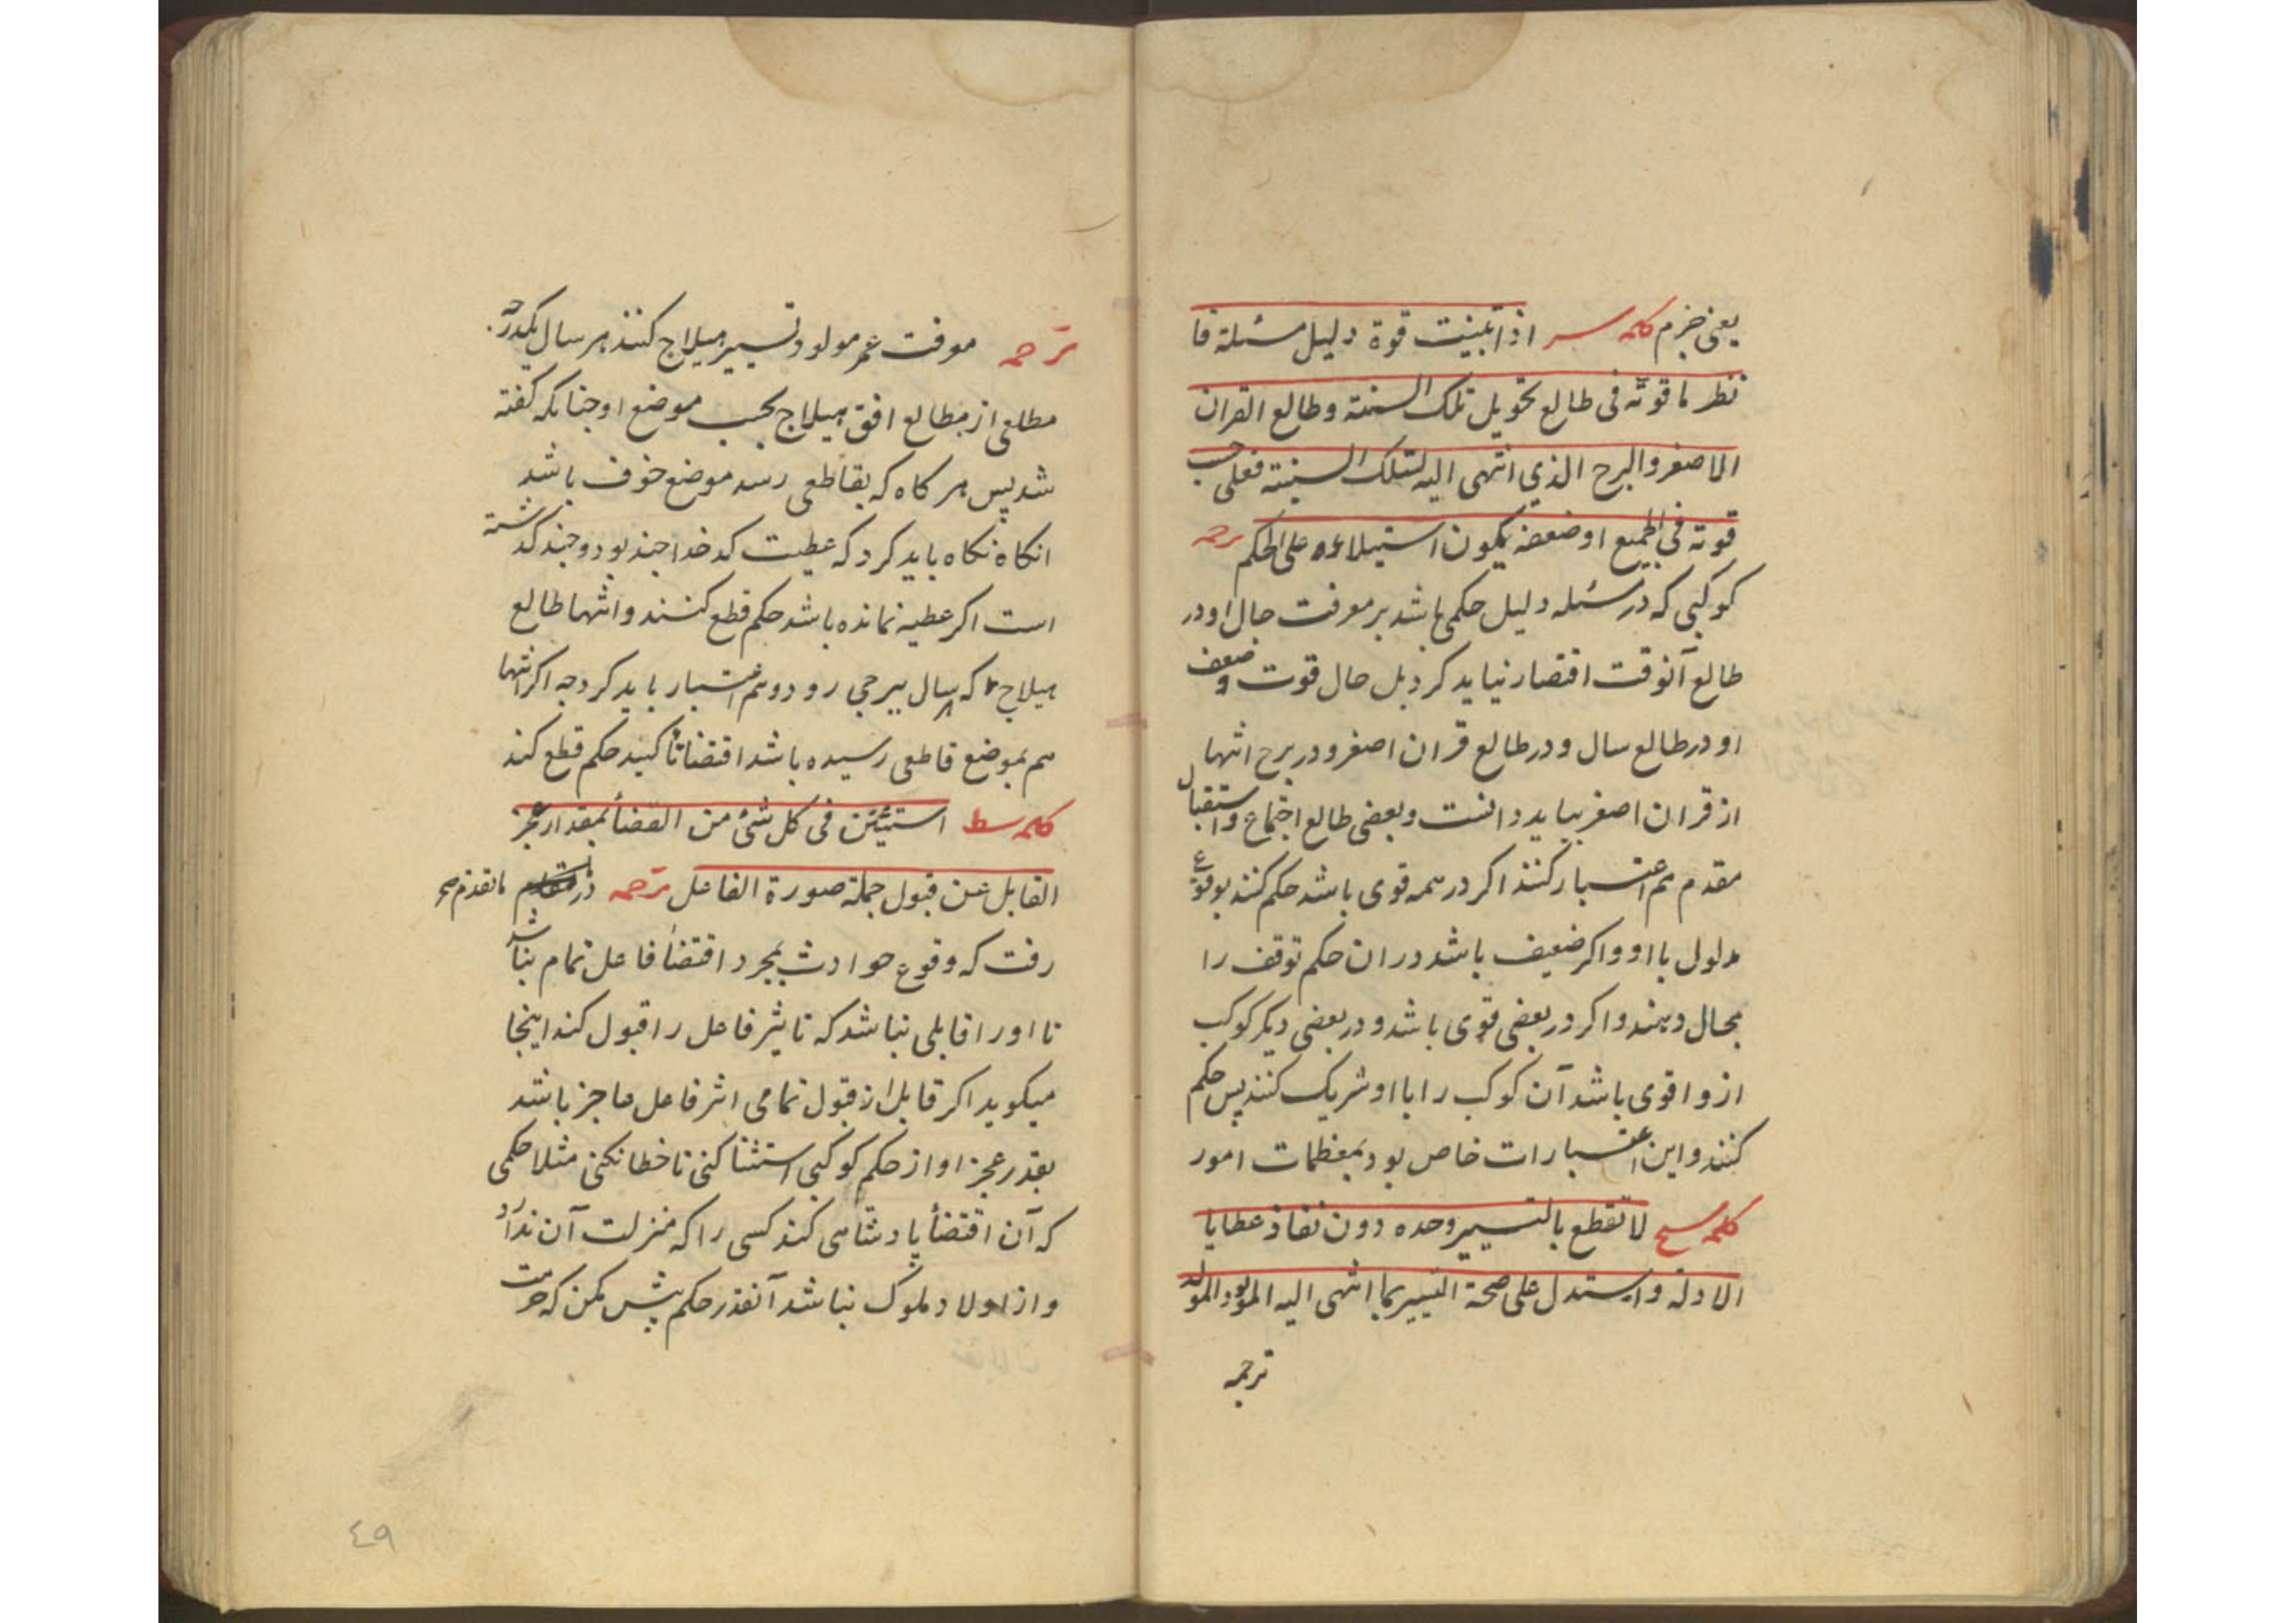 یعنی جزم کلمه سر اذا تبینت قوة دلیل مسئلة فا
نظر ما قوته فی طالع تحویل تلک السنة وطالع القران
الاصغر والبرج الذی انتهی الیه لتلک السنة فعلی حسب
قوته فی الجمیع او ضعفه یکون استیلاءه علی الحکم ترجمه
کوکبی که در مسئله دلیل حکمی باشد بر معرفت حال او در
طالع آنوقت اقتصار نباید کرد بل حال قوت و ضعف
او در طالع سال و در طالع قران اصغر و در برج انتها
از قران اصغر بباید دانست و بعضی طالع اجتماع و استقبال
مقدم هم اعتبار کنند اکر در همه قوی باشد حکم کنند بوقوع
مدلول با او و اکر ضعیف باشد در ان حکم توقف را
مجال دهند و اکر در بعضی قوی باشد و در بعضی دیکر کوکب
ازو اقوی باشد آن کوکب را با او شریک کنند پس حکم
کنند و این اعتبارات خاص بود بمعظمات امور
کلمه سح لا تقطع بالتسییر وحده دون نفاذ عطایا
الادلة واستدل علی صحة التسییر بما انتهی الیه المولود
ترجمه
ترجمه موقت عمر مولود تسییر هیلاج کنند هر سال یکدرجه
مطلعی از مطالع افق هیلاج بحسب موضع او چنانکه کفته
شد پس هر کاه که بقاطعی رسد موضع خوف باشد
انکاه نکاه باید کرد که عطیت کدخدا چند بود و چند کذشته
است اکر عطیه نمانده باشد حکم قطع کنند و انتها طالع
هیلاج که بسال ببرجی رود و هم اعتبار باید کرد چه اکر انتها
هم بموضع قاطعی رسیده باشد اقتضا تأکید حکم قطع کند
کلمه سط استثن فی کل شئ من القضأ بمقدار عجز
القابل عن قبول جملة صورة الفاعل ترجمه در ما تقدم صح
رفت که وقوع حوادث بمجرد اقتضأ فاعل تمام نباشد
تا او را قابلی نباشد که تاثیر فاعل را قبول کند اینجا
میکوید اکر قابل از قبول تمامی اثر فاعل عاجز باشد
بقدر عجز او از حکم کوکبی استثنا کنی تا خطا نکنی مثلا حکمی
که آن اقتضأ پادشاهی کند کسی را که منزلت آن ندارد
و از اولاد ملوک نباشد آنقدر حکم بیش مکن که حرمت
٤٩